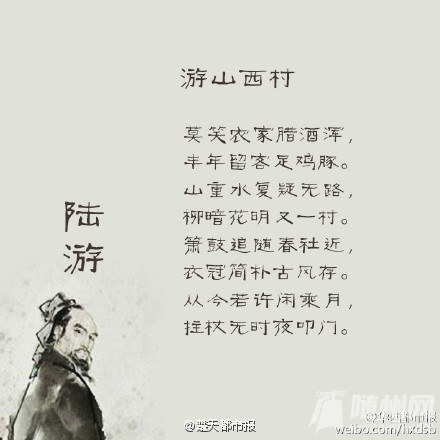 游山西村
莫笑农家腊酒浑，
丰年留客足鸡豚。
山重水复疑无路，
柳暗花明又一村。
箫鼓追随春社近，
衣冠简朴古风存。
从今若许闲乘月，
拄杖无时夜叩门。
陆游
@楚天都市报
随州网
weibo.com/hxdsb